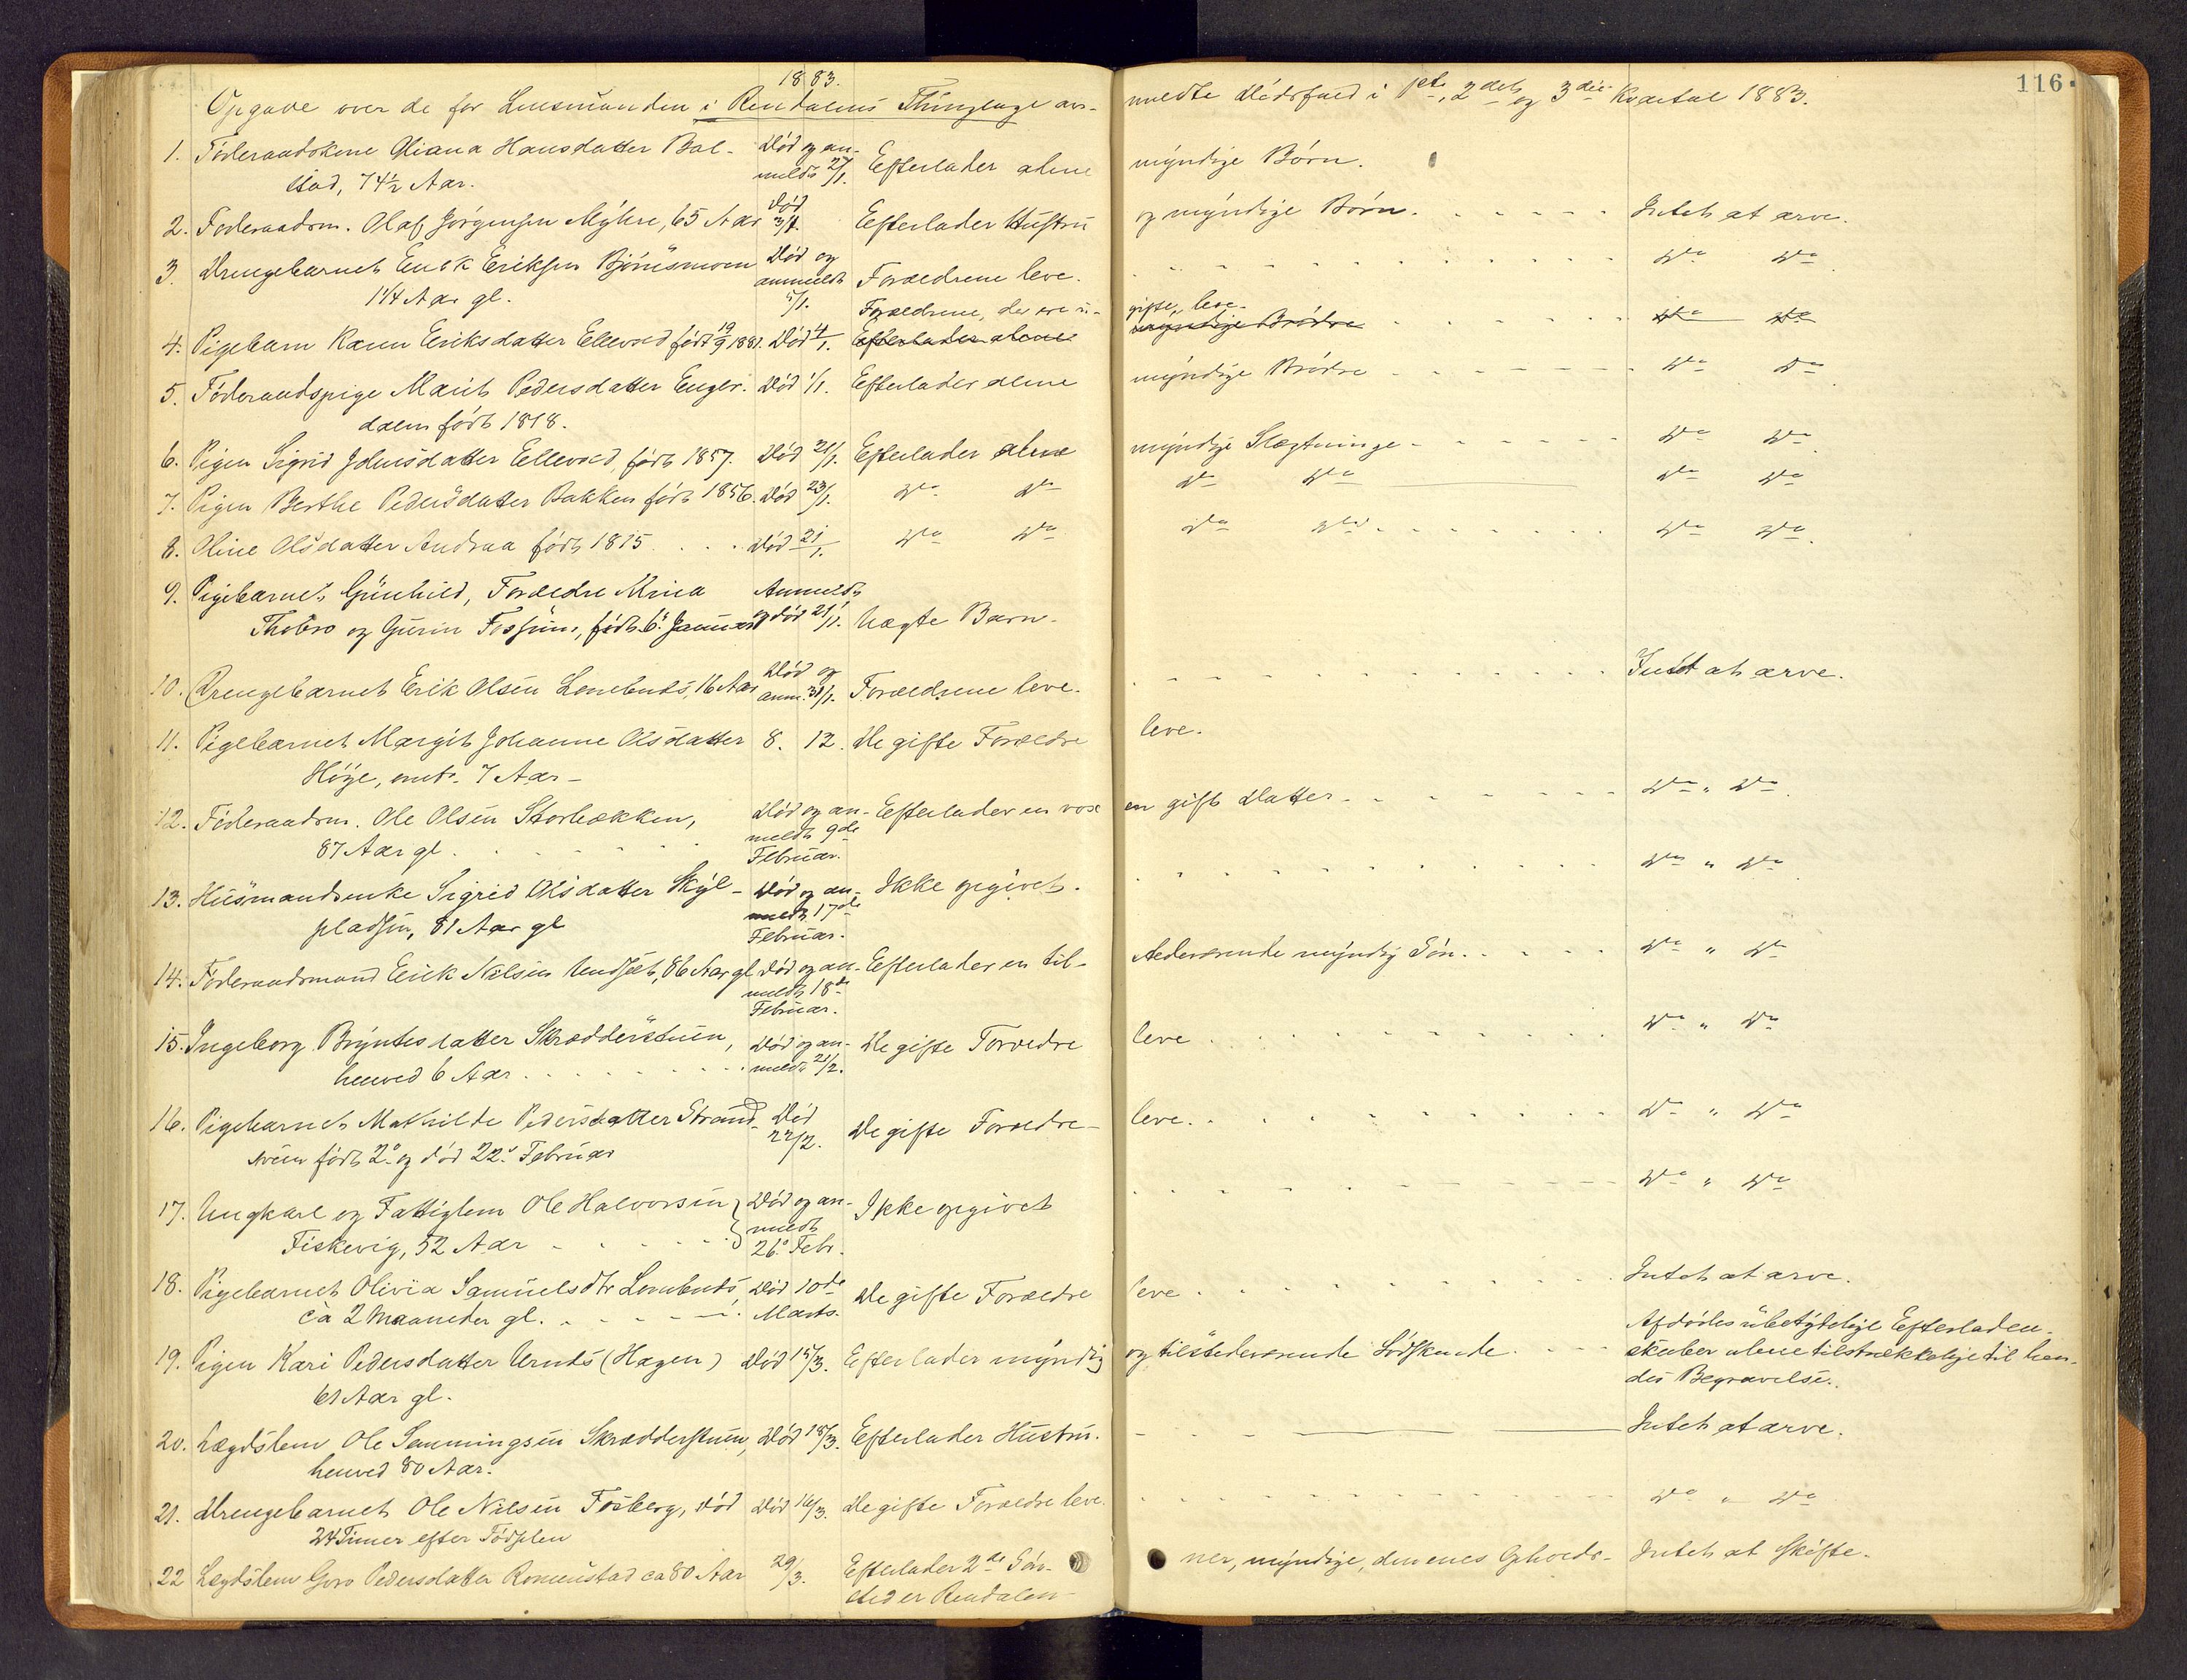 1883.
116.
Opgave over de for Lensmanden i Rendalens Thinglage an-
meldte Dödsfald i 1ste, 2det og 3die Kvartal 1883.
1. Föderaadskone Oliana Hansdatter Bol-
stad, 74 1/2 Aar.
Död og an-
meldt 27/1.
Efterlader alene
myndige Börn.
2. Föderaadsm. Olaf Jörgensen Myhre, 65 Aar
Död
3/1.
Efterlader Hustru
og myndige Börn. Intet at arve.
3. Drengebarnet Erick Eriksen Björnsmoen
1 1/4 Aar gl.
Död og
anmeldt
5/1.
Forældrene leve.
do do
4. Pigebarn Karen Eriksdatter Ellevold født 19/9 1881.
Död 4/1.
Forældrene, der ere u-
Efterlader alene
gifte, leve.
myndige Brödre
do do
5. Föderaadspige Marit Pedersdatter Enger-
dalen født 1818.
Död 1/1.
Efterlader alene
myndige Brödre do do
6. Pigen Sigrid Johnsdatter Ellevold, født 1857.
Död 21/1.
Efterlader alene
myndige Slægtninge do do
7. Pigen Berthe Pedersdatter Bakken født 1856.
Död 23/1.
do do
do do do do
8. Oline Olsdatter Andraa født 1815
Död 21/1.
do do
do do do do
9. Pigebarnet Gunhild, Forældre
Thobro og Gurin Fossum, født 6. Januar
Anmeldt
og död 21/1.
Uægte Barn.
10. Drengebarnet Erik Olsen Lombnds, 16 Aar
Död og
anm. 31/1.
Forældrene leve.
Intet at arve.
11. Pigebarnet Margit Johanne Olsdatter
Höye, omtr. 7 Aar
8. 12.
De gifte Forældre
leve.
12. Föderaadsm. Ole Olsen Storbækken,
87 Aar gl.
Död og an-
meldt 9de
Februar.
Efterlader en vox
en gift Datter do " do
13. Husmandsenke Sigrid Olsdatter Skyl-
pladsen, 81 Aar gl
Död og an-
meldt 17de
Februar.
Ikke opgivet.
do " do
14. Föderaadsmand Erick Nilsen Undset, 86 Aar gl
Död og an-
meldt 18de
Februar.
Efterlader en til-
stedeværende myndig Sön. do " do
15. Ingeborg Bryntesdatter Skrædderstuen,
henved 6 Aar
Död og an-
meldt 21/2.
De gifte Forældre
leve do " do
16. Pigebarnet Mathilde Pedersdatter Strand-
født 2. og död 22. Februar
Död
22/2.
De gifte Forældre
leve. do " do
17. Ungkarl og Fattiglem Ole Halvorsen
Fiskevig, 52 Aar
Död og an-
meldt
26. Febr.
Ikke opgivet
do " do
18. Pigebarnet Olivia Samuelsdtr Lombnds,
ca 2 Maaneder gl.
Död 10de
Marts.
De gifte Forældre
leve. Intet at arve.
19. Pigen Kari Pedersdatter Urnds (Hagen)
61 Aar gl.
Död 15/3.
Efterlader myndig
og tilstedeværende Södskende.
Afdödes ubetydelige Efterladen-
skaber alene tilstrækkelige til hen-
des Begravelse.
20. Lægdslem Ole Semmingsen Skrædderstuen,
henved 80 Aar.
Död 18/3.
Efterlader Hustru.
Intet at arve.
21. Drengebarnet Ole Nilsen Fosberg, död
24 Timer efter Födselen
Död 16/3.
De gifte Forældre leve.
do " do
22 Lægdslem Goro Pedersdatter Romenstad ca 80 Aar
29/3.
Efterlader 2de Sön-
ner, myndige, den enes Opholds- Intet at Skifte.
sted er Rendalen